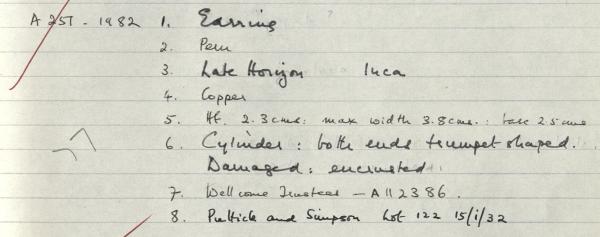 A 257 - 1982 1. Earring
2. Peru
3. Late Horizon Inca
4. Copper
5. Ht. 2.3 cms: max width 3.8 cms.: base 2.5 cms
6. Cylinder: both ends trumpet shaped.
Damaged: encrusted.
7. Wellcome Trustees - A 112386.
8. Puttick and Simpson Lot 122 15/i/32